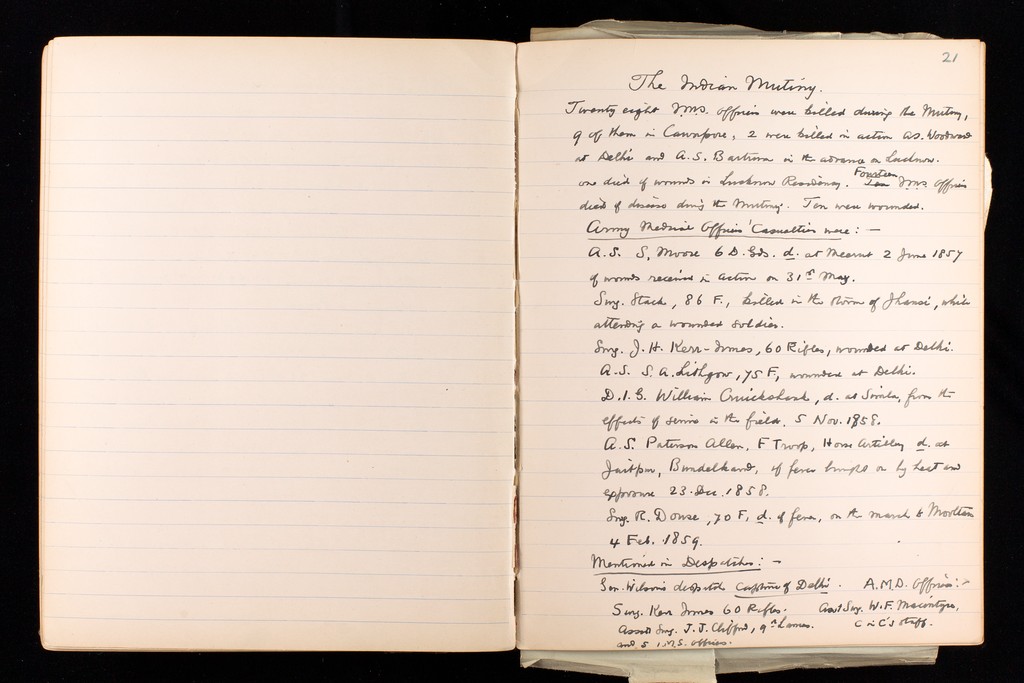 21
The Indian Mutiny.
Twenty eight I.M.S. officers were killed during the Mutiny,
9 of them in Cawnpore, 2 were killed in action A.S. Woodward
at Delhi and A.S. Bartrum in the advance on Lucknow.
one died of wounds in Lucknow Residency. Fourteen I.M.S. officers
died of disease during the Mutiny. Ten were wounded.
Army Medical Officers' Casualties were : —
A.S. S. Moore 6 D. Gds. d. at Meerut 2 June 1857
of wounds received in action on 31st May.
Surg. Stack, 86 F., killed in the storm of Jhansi, while
attending a wounded soldier.
Surg. J. H. Kerr-Innes, 60 Rifles, wounded at Delhi.
A.S. S. A. Lithgow, 75 F, wounded at Delhi.
D.I.G. William Cruickshank, d. at Simla, from the
effects of service in the field. 5 Nov. 1858.
A.S. Paterson Allen, F Troop, Horse Artillery d. at
Jaitpur, Bundelkand, of fever brought on by heat and
exposure 23. Dec. 1858.
Surg. R. Dowse, 70 F, d. of fever, on the march to Mooltan
4 Feb. 1859.
Mentioned in Despatches : —
Gen. Wilson's despatch Capture of Delhi. A.M.D. Officers : -
Surg. Kerr Innes 60 Rifles. Asst Surg. W. F. Macintyre,
Assist Surg. J. J. Clifford, 9th Lancers. C in C's staff.
and 5 I.M.S. officers.